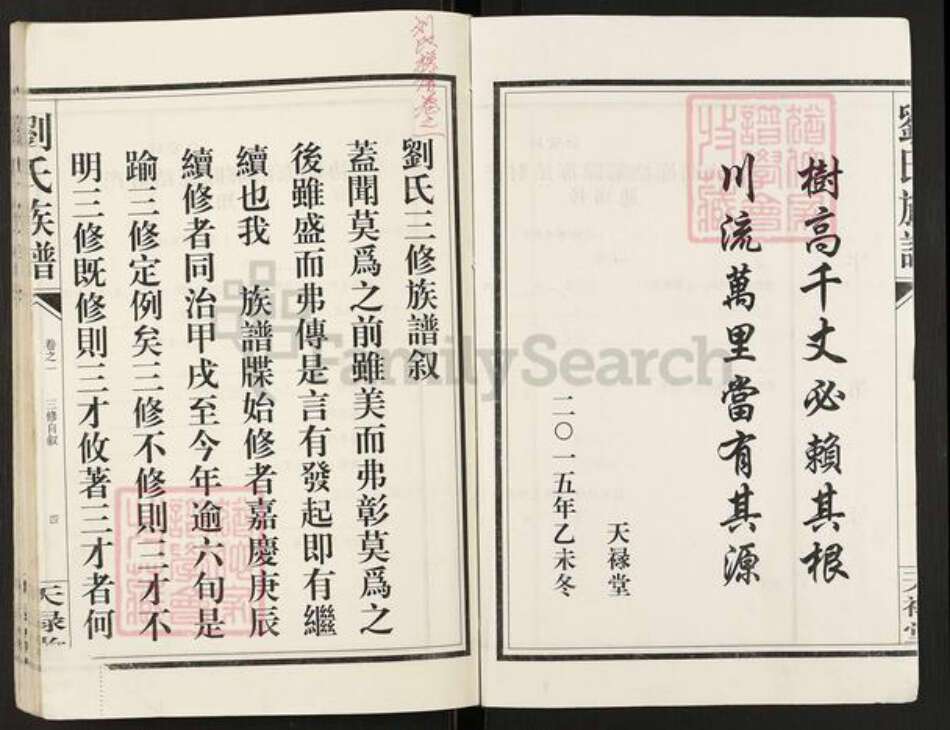 劉氏族譜
天祿堂
樹高千丈必賴其根
川流萬里當有其源
天禄堂
二〇一五年乙未冬
劉氏三修族譜叙
蓋聞莫爲之前雖美而弗彰莫爲之
後雖盛而弗傳是言有發起即有繼
續也我 族譜牒始修者嘉慶庚辰
續修者同治甲戌至今年逾六旬是
踰三修定例矣三修不修則三才不
明三修既修則三才攸著三才者何
劉氏族譜
卷之一
三修自叙
四
天祿堂
FamilySearch